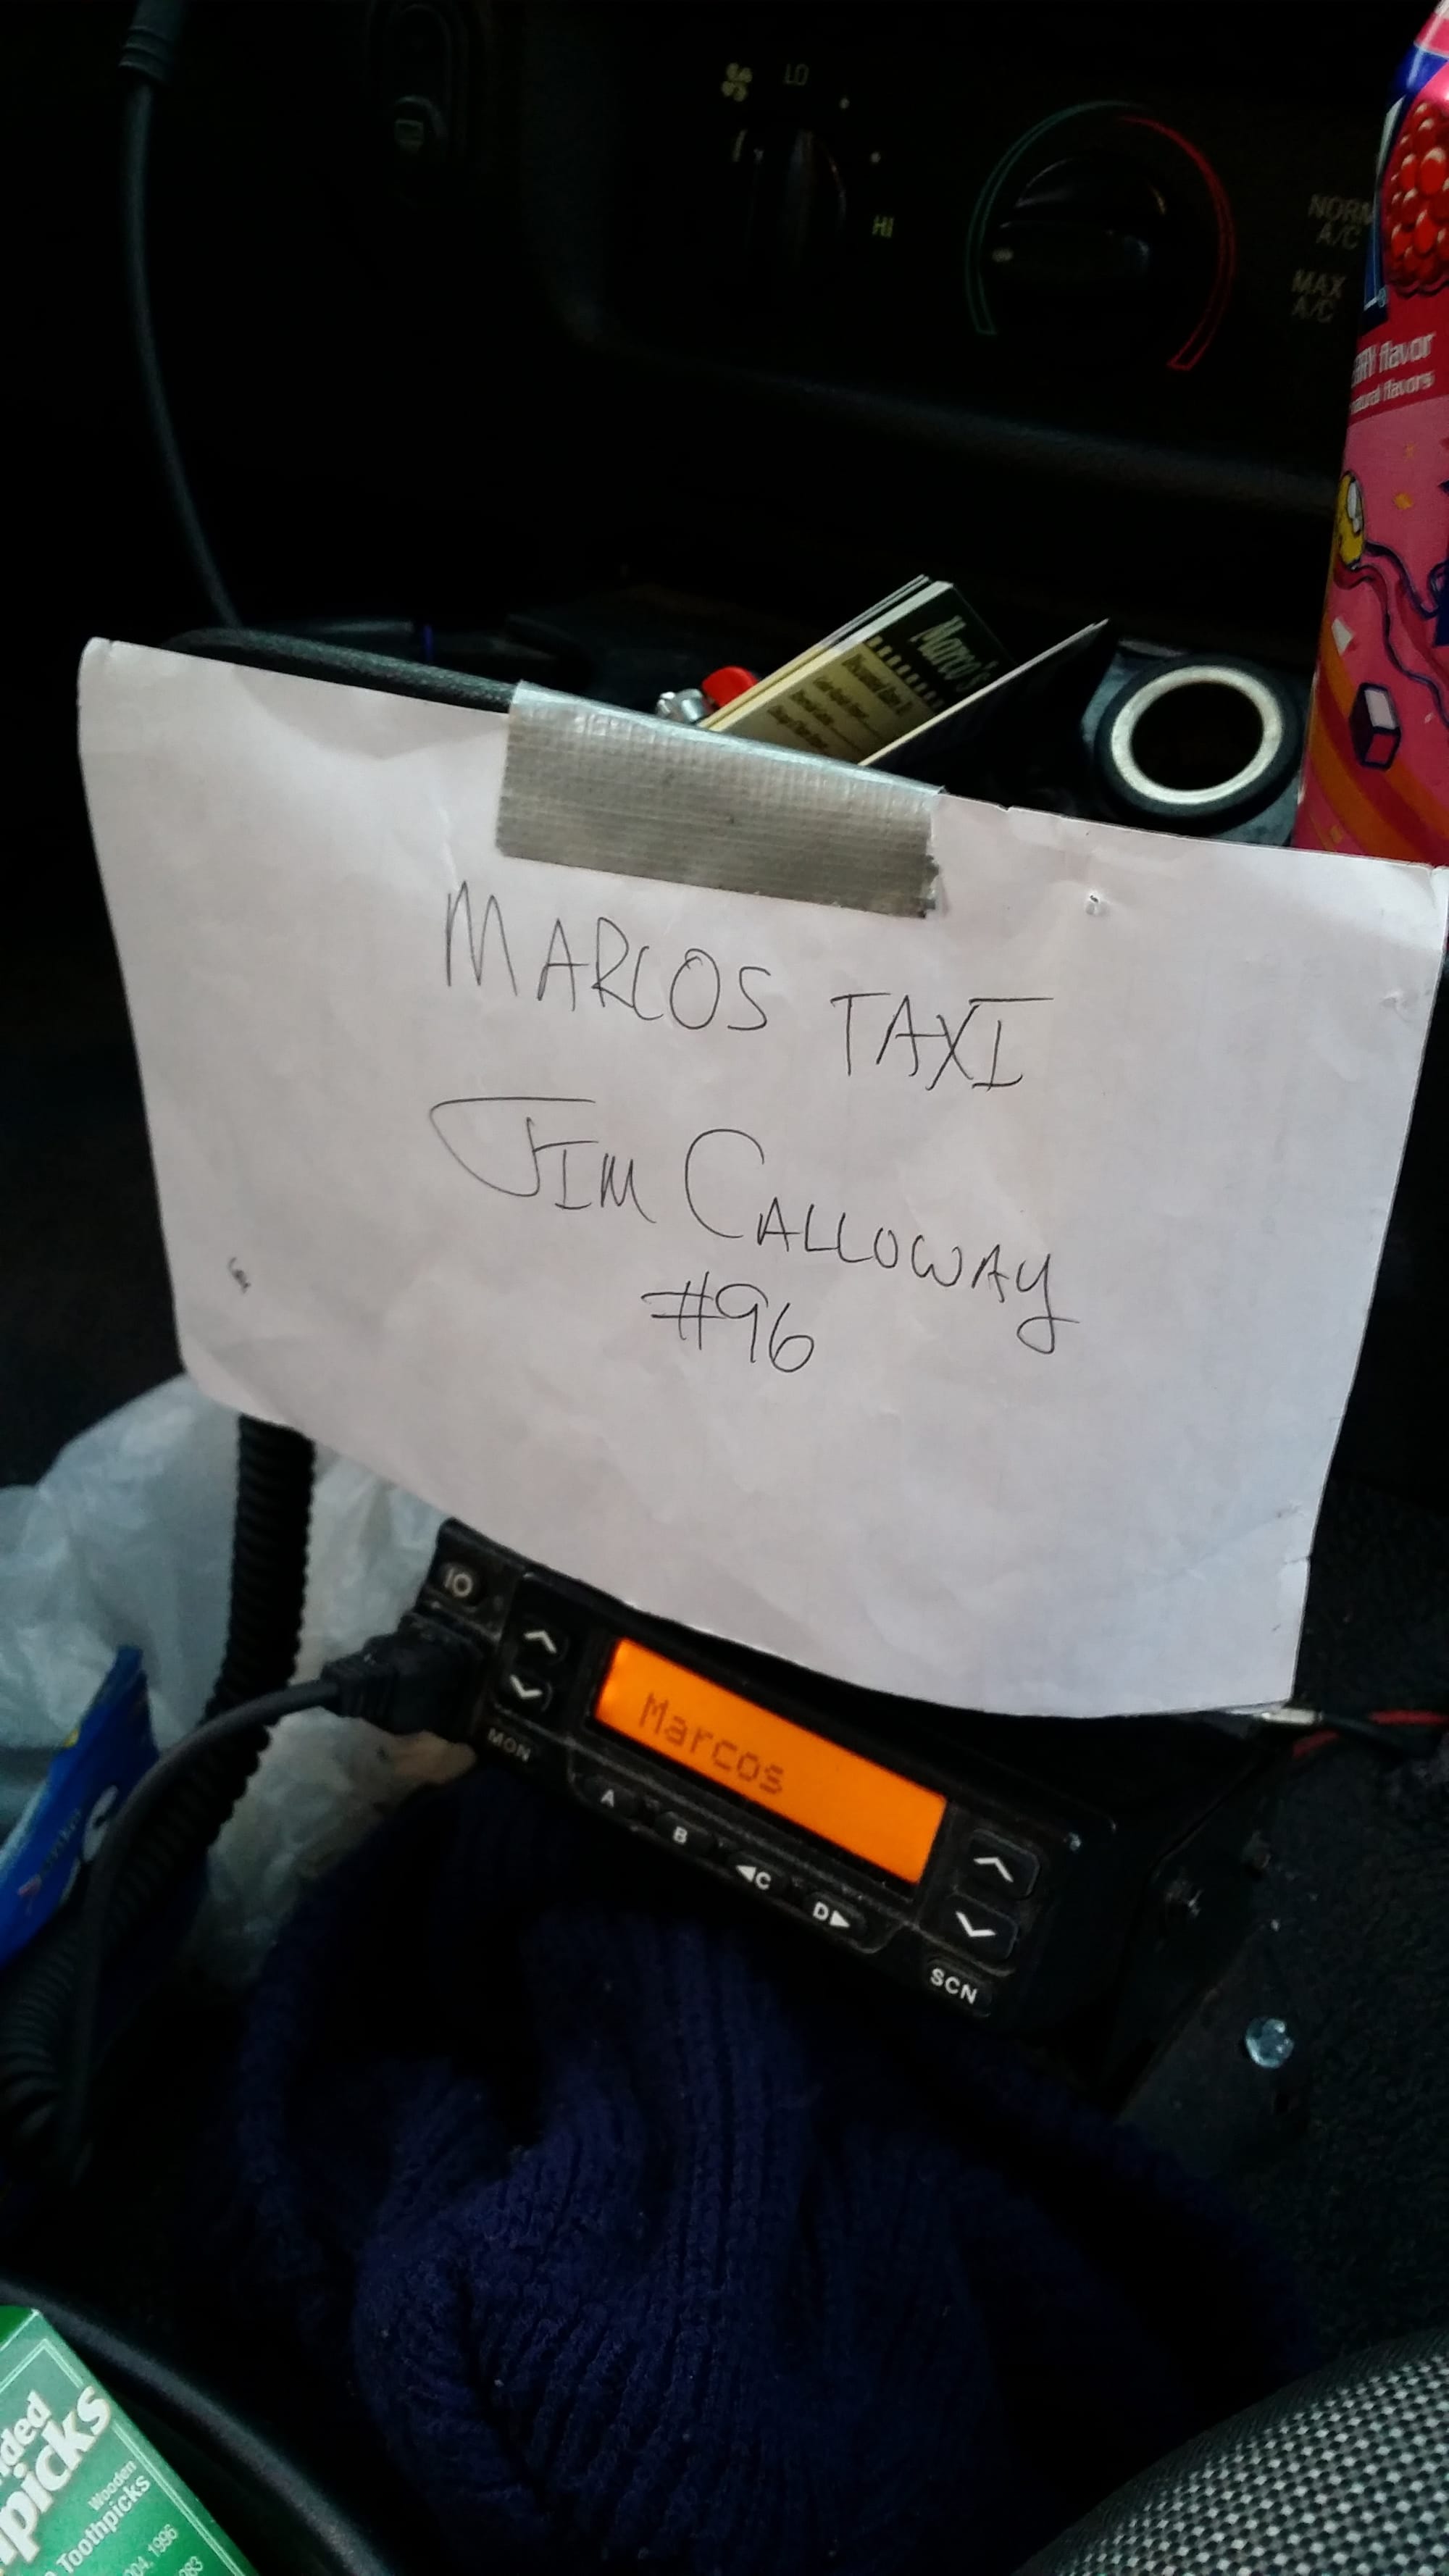 LO
HI
NORM
A/C
MAX
A/C
flavor
natural flavors
Marco's
MARCOS TAXI
JIM CALLOWAY
#96
IO
MON
Marcos
A
B
◀C
D▶
SCN
Wooden
Toothpicks
1996